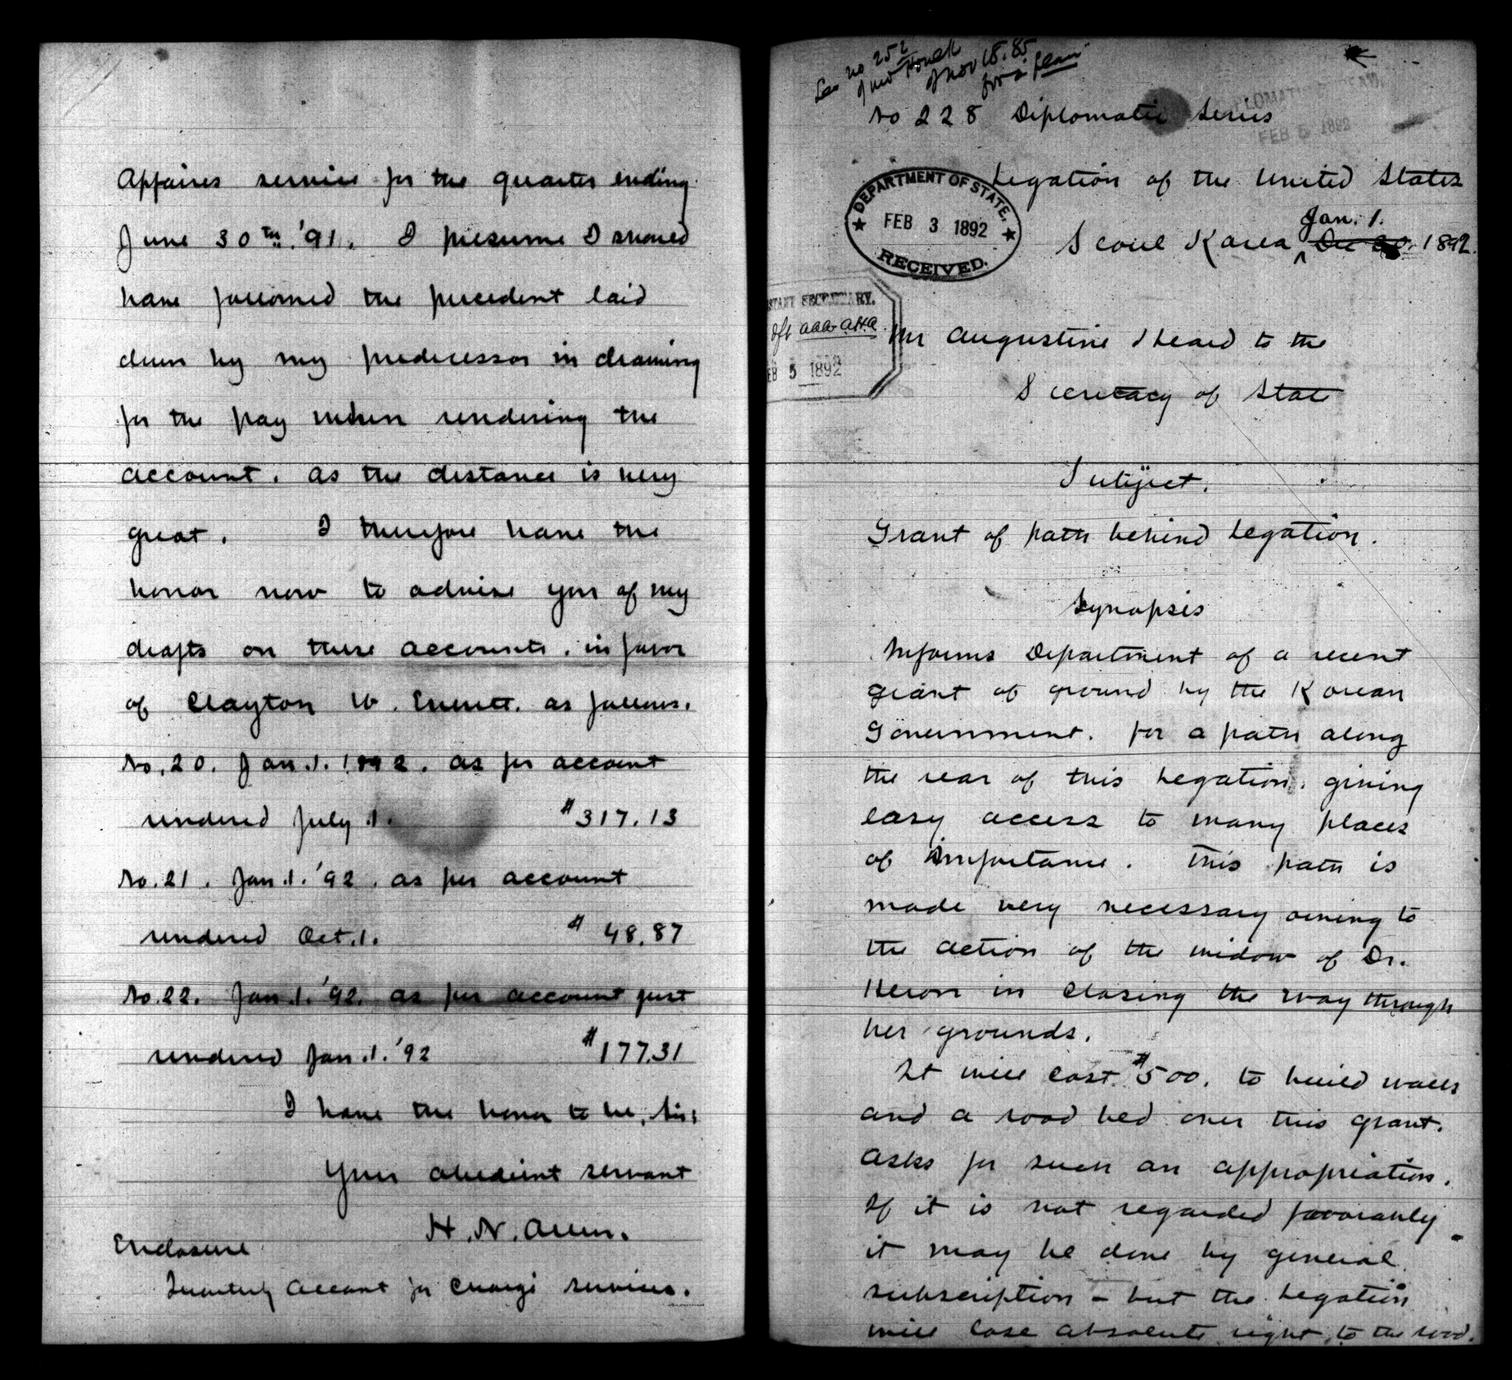 Affaires service for the quarter ending
June 30th. '91. I presume I should
have followed the precedent laid
down by my predecessor in drawing
for the pay when rendering the
account. as the distance is very
great. I therefore have the
honor now to advise you of my
drafts on these accounts. in favor
of Clayton W. Everett. as follows.
No. 20. Jan. 1. 1892. as per account
rendered July 1. $317.13
No. 21. Jan. 1. '92. as per account
rendered Oct. 1. $ 48.87
No. 22. Jan. 1. '92. as per account just
rendered Jan. 1. '92 $177.31
I have the honor to be, Sir:
Your obedient servant
H. N. Allen.
Enclosure
Quarterly Account for Chargé services.
See no 252
of Mr Foulk
of Nov 18.85
for a plan
No 228 Diplomatic Series
DIPLOMATIC BUREAU,
FEB 5 1892
Legation of the United States
DEPARTMENT OF STATE,
FEB 3 1892
RECEIVED.
Jan. 1.
Seoul Korea Dec 20. 1892.
SECRETARY.
FEB 5 1892
Mr Augustine Heard to the
Secretary of State
Subject.
Grant of path behind Legation.
Synopsis
Informs Department of a recent
grant of ground by the Korean
Government. for a path along
the rear of this Legation. giving
easy access to many places
of importance. This path is
made very necessary owing to
the action of the widow of Dr.
Heron in closing the way through
her grounds.
It will cost $500. to build walls
and a road bed over this grant.
Asks for such an appropriation.
If it is not regarded favorably
it may be done by general
subscription - but the Legation
will lose absolute right to the road.